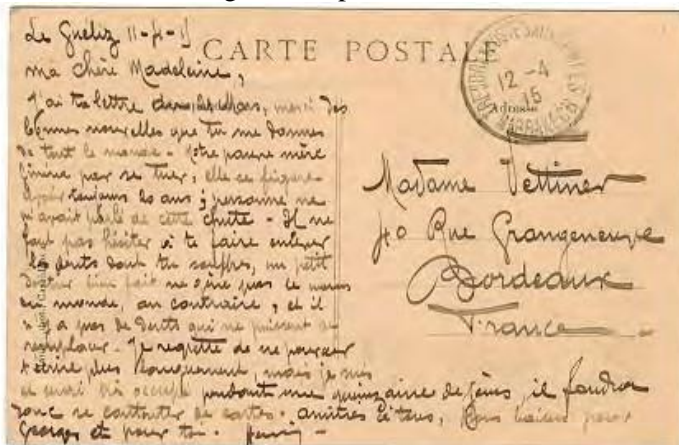 Le Guéliz 11-4-15
CARTE POSTALE
ma chère Madeleine,
J'ai ta lettre du Mars, merci des
bonnes nouvelles que tu me donnes
de tout le monde - Votre pauvre mère
finira par se tuer, elle se figure
avoir toujours 20 ans ; personne ne
m'avait parlé de cette chute - Il ne
faut pas hésiter à te faire enlever
les dents dont tu souffres, un petit
bien fait ne gêne pas le moins
du monde, au contraire, et il
n'y a pas de dents qui ne puissent se
remplacer - Je regrette de ne pouvoir
t'écrire plus longuement, mais je suis
et serai très occupé pendant une quinzaine de jours, il faudra
donc se contenter de cartes. amitiés à tous, bons baisers pour
Georges et pour toi.
TRESOR ET POSTES
MARRAKECH
12-4
15
Adresse
Madame Vettiner
40 Rue Grangeneuve
Bordeaux
France